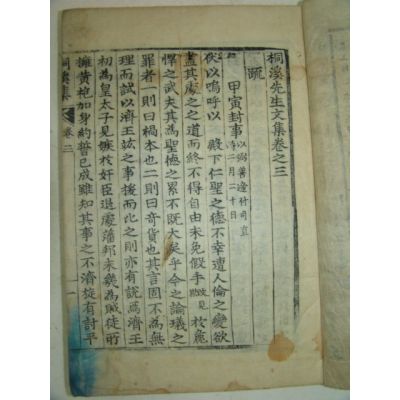 桐溪先生文集卷之三
疏
甲寅封事 以弼善遞付司直
二月二十日
伏以嗚呼以 殿下仁聖之德不幸遭人倫之變欲
盡其處之之道而終不得自由未免假手於麁
悍之武夫其爲聖德之累不旣大矣乎今之論㼁之
罪者一則曰禍本也二則曰奇貨也其言固不爲無
理而試以濟王竑之事後而比之則亦有說焉濟王
初爲皇太子見嫉於奸臣退處藩邸未幾爲賊徒所
擁黃袍加身約誓已成雖知其事之不濟旋有討平
桐溪集 卷三 一